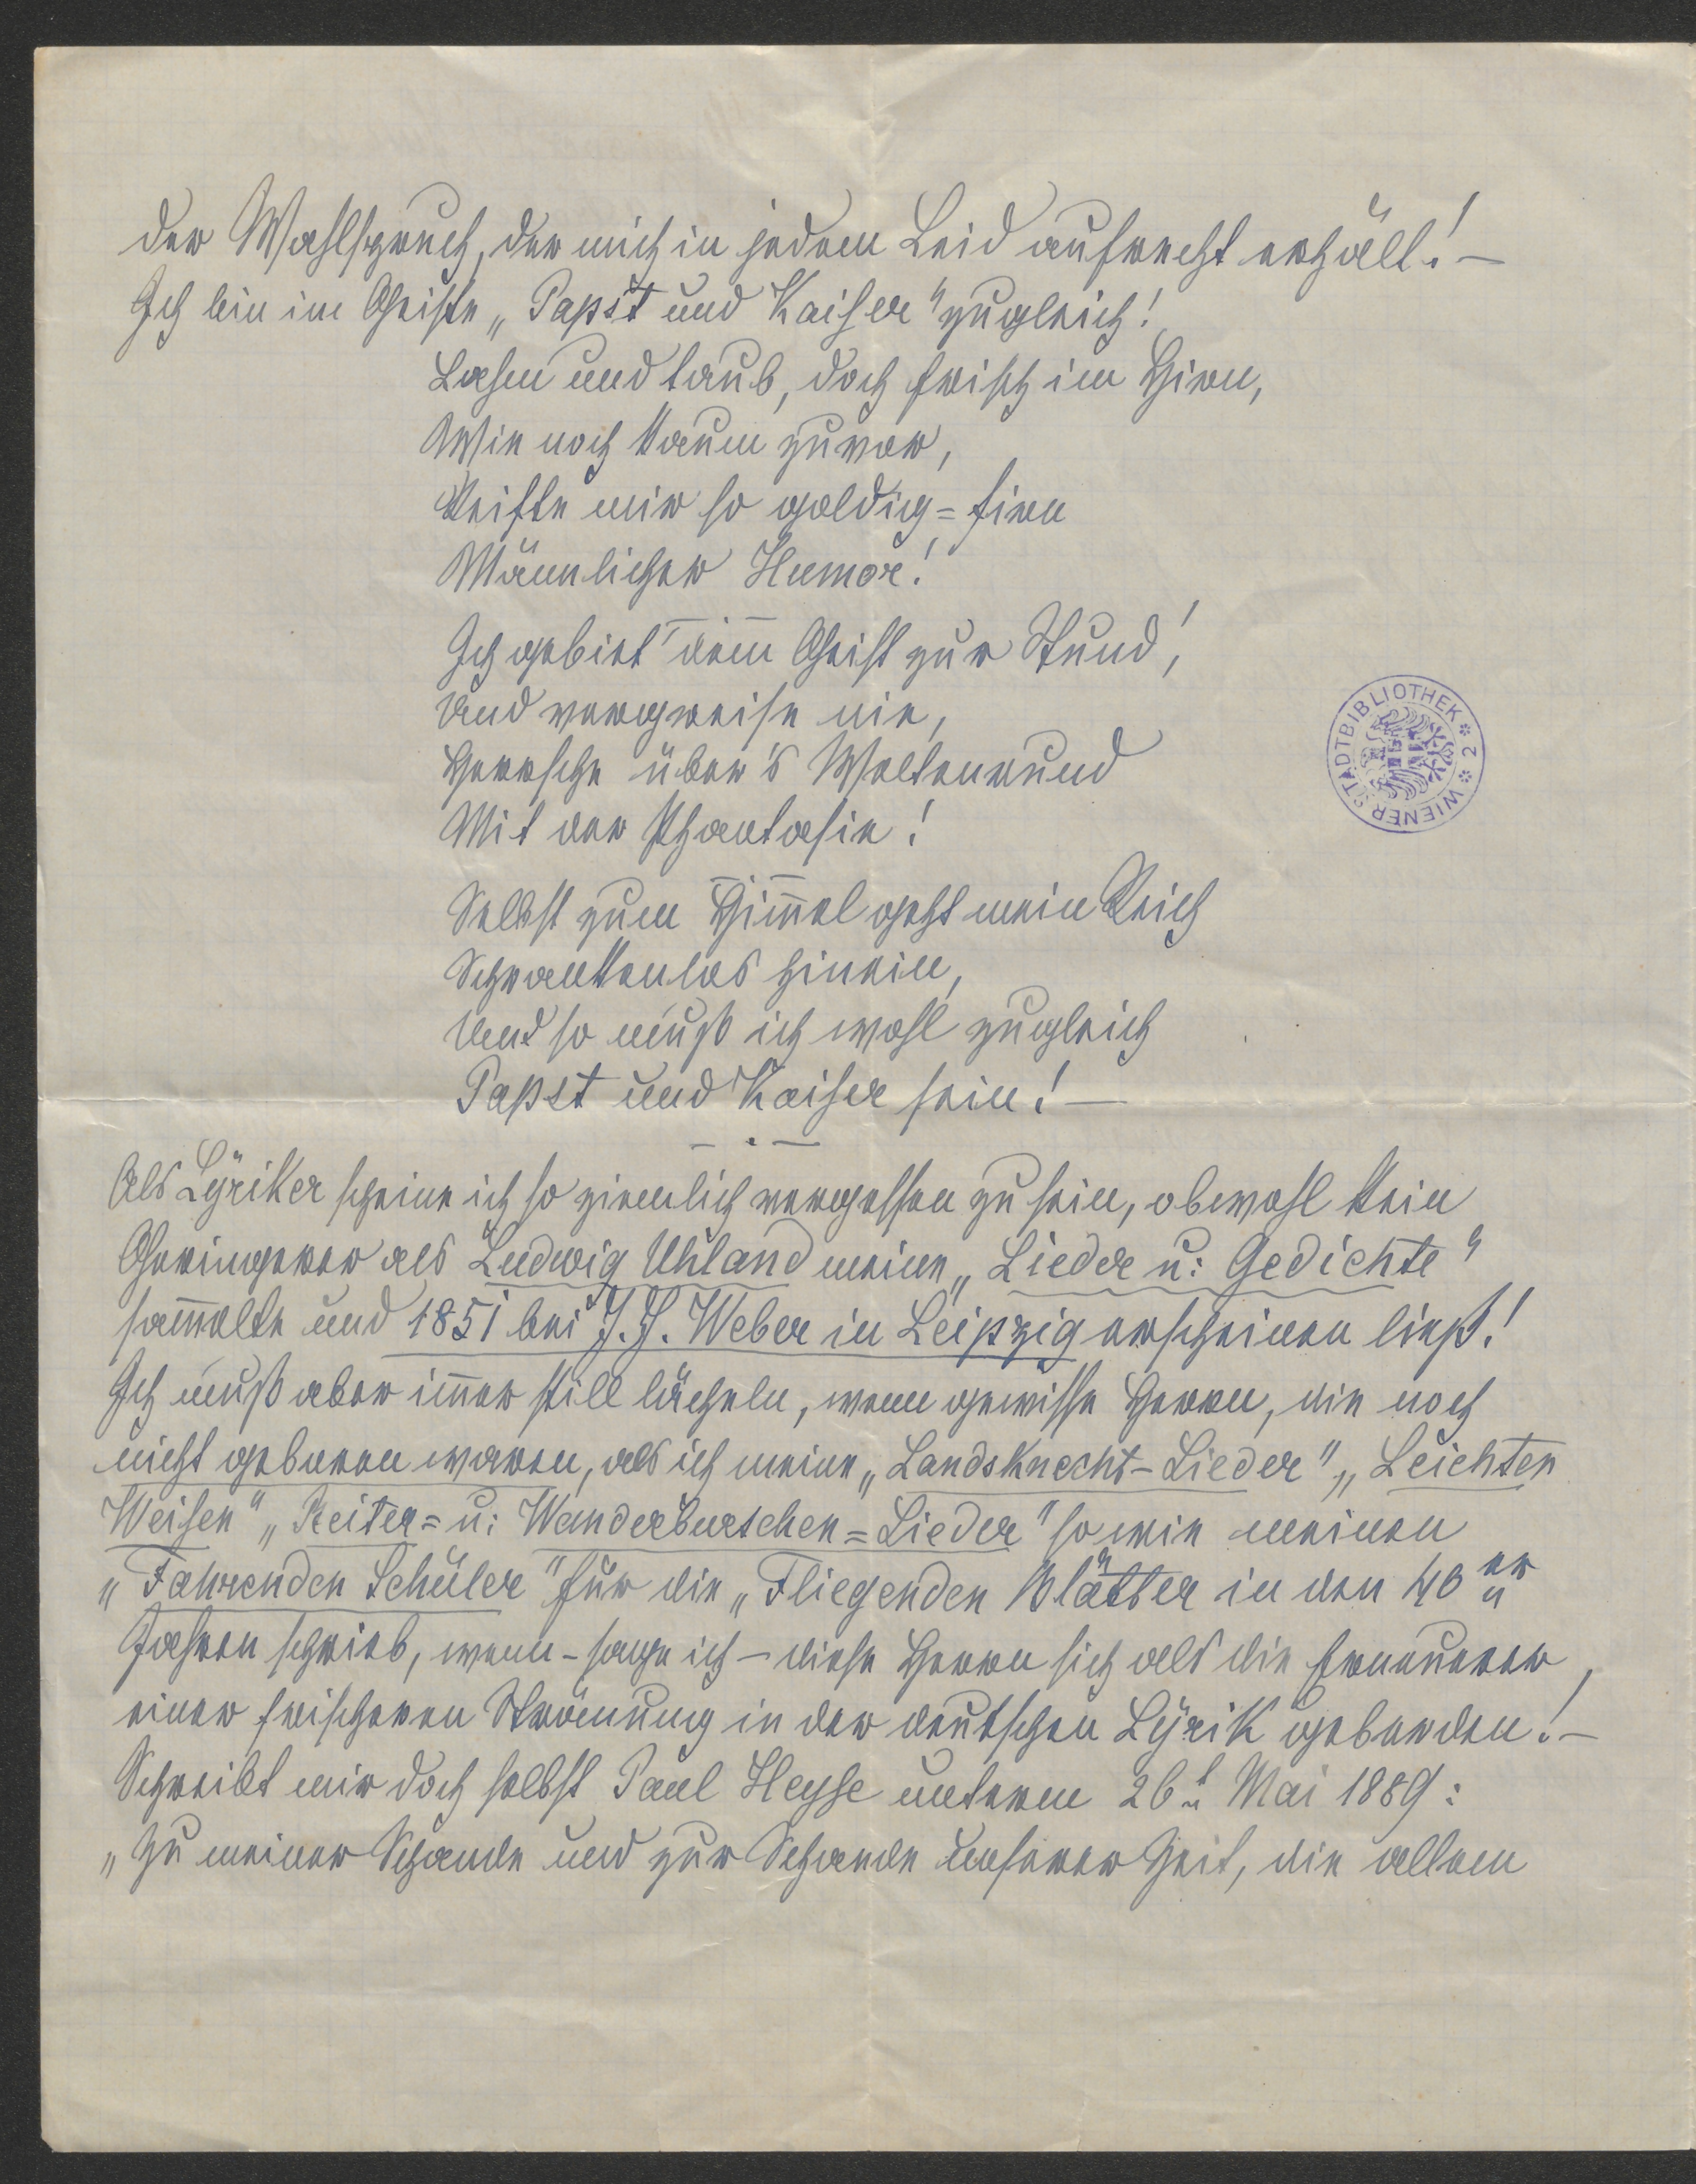 der Wahlspruch, der mich in jedem Leid aufrecht erhält! —
Ich bin im Geiste „Papst und Kaiser" zugleich!
Lahm und taub, doch frisch im Hirn,
Wie noch kaum zuvor,
Reifte mir so goldig=firn
Männlicher Humor!
— · —
Ich gebiet' dem Geist zur Stund',
Und vergreise nie,
Herrsche über's Weltenrund
Mit der Phantasie!
— · —
Selbst zum Him̅el geht mein Reich
Schrankenlos hinein,
Und so muß ich wohl zugleich
Papst und Kaiser sein! —
— · —
Als Lÿriker scheine ich so ziemlich vergessen zu sein, obwohl kein
Geringerer als Ludwig Uhland meine „Lieder u: Gedichte"
sam̅elte und 1851 bei J. J. Weber in Leipzig erscheinen ließ!
Ich muß aber im̅er still lächeln, wenn gewisse Herren, die noch
nicht geboren waren, als ich meine „Landsknecht-Lieder", „Leichten
Weisen" „Reiter= u: Wanderburschen=Lieder" sowie meinen
„Fahrenden Schüler" für die „Fliegenden Blätter in den 40er
Jahren schrieb, wenn – sage ich – diese Herren sich als die Erneuerer
einer frischeren Strömung in der deutschen Lÿrik geberden! —
Schreibt mir doch selbst Paul Heyse unterm 26t Mai 1889:
„Zu meiner Schande und zur Schande unserer Zeit, die allem
WIENER STADTBIBLIOTHEK * 2 *